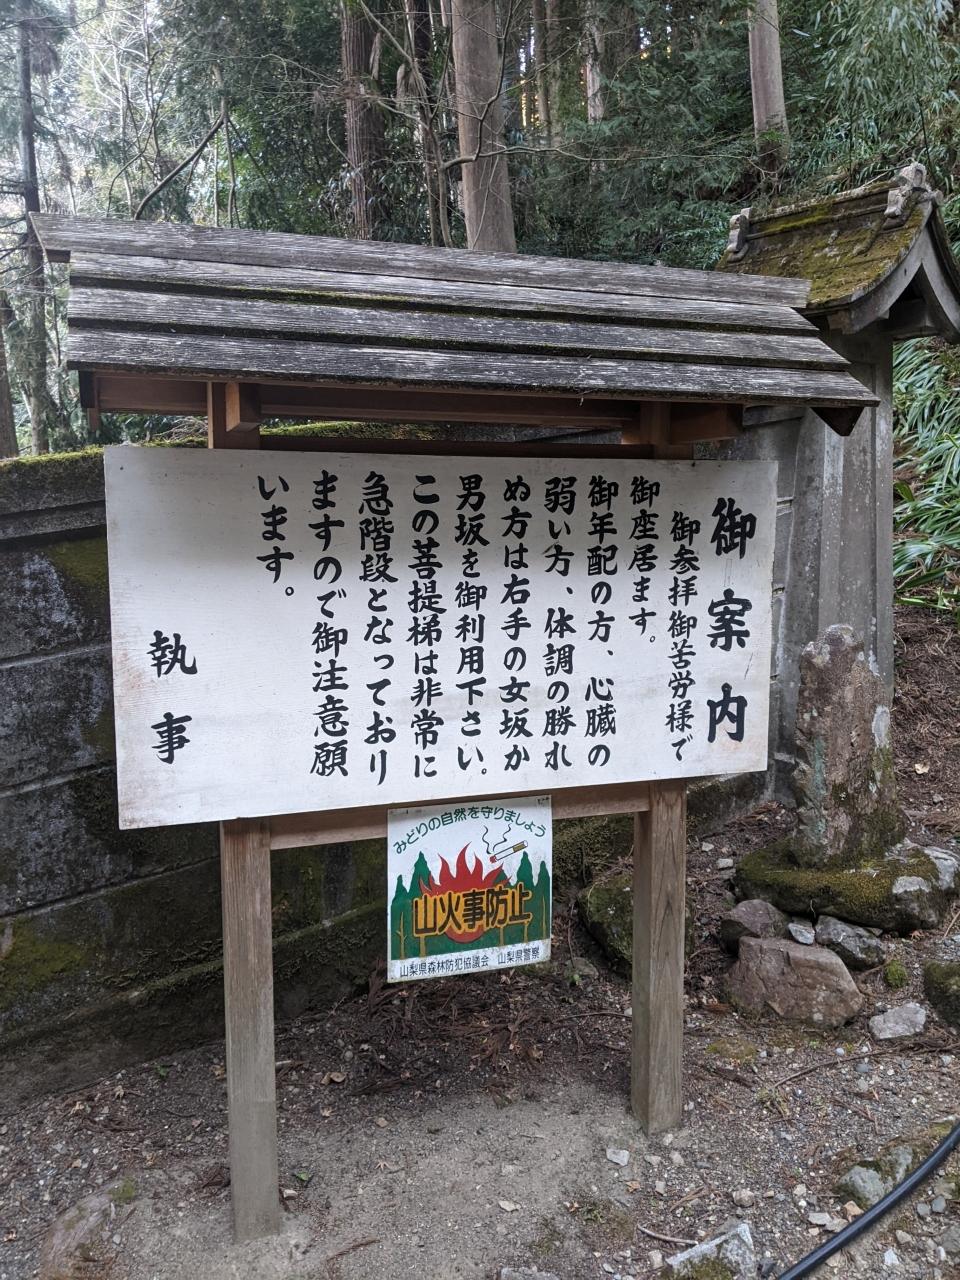 御案内
御参拝御苦労様で
御座居ます。
御年配の方、心臓の
弱い方、体調の勝れ
ぬ方は右手の女坂か
男坂を御利用下さい。
この菩提梯は非常に
急階段となっており
ますので御注意願
います。
執事
みどりの自然を守りましょう
山火事防止
山梨県森林防犯協議会 山梨県警察